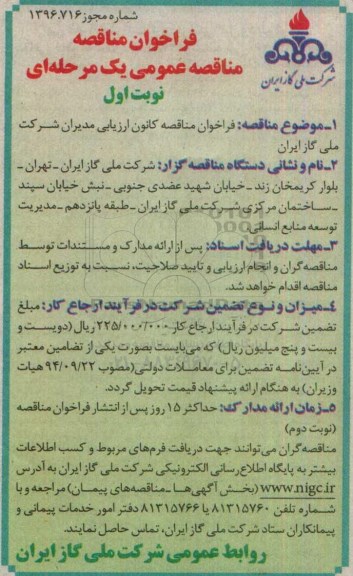 شماره مجوز ۱۳۹۶.۷۱۶
فراخوان مناقصه
مناقصه عمومی یک مرحله‌ای
نوبت اول
شرکت ملی گاز ایران
۱ـ موضوع مناقصه: فراخوان مناقصه کانون ارزیابی مدیران شرکت
ملی گاز ایران
۲ـ نام و نشانی دستگاه مناقصه گزار: شرکت ملی گاز ایران ـ تهران ـ
بلوار کریمخان زند ـ خیابان شهید عضدی جنوبی ـ نبش خیابان سپند
ـ ساختمان مرکزی شرکت ملی گاز ایران ـ طبقه پانزدهم ـ مدیریت
توسعه منابع انسانی
۳ـ مهلت دریافت اسناد: پس از ارائه مدارک و مستندات توسط
مناقصه‌گران و انجام ارزیابی و تایید صلاحیت، نسبت به توزیع اسناد
مناقصه اقدام خواهد شد.
۴ـ میزان و نوع تضمین شرکت در فرآیند ارجاع کار: مبلغ
تضمین شرکت در فرآیند ارجاع کار ۲۲۵/۰۰۰/۰۰۰ ریال (دویست و
بیست و پنج میلیون ریال) که می‌بایست بصورت یکی از تضامین معتبر
در آیین‌نامه تضمین برای معاملات دولتی (مصوب ۹۴/۰۹/۲۲ هیات
وزیران) به هنگام ارائه پیشنهاد قیمت تحویل گردد.
۵ـ زمان ارائه مدارک: حداکثر ۱۵ روز پس از انتشار فراخوان مناقصه
(نوبت دوم)
مناقصه‌گران می‌توانند جهت دریافت فرم‌های مربوط و کسب اطلاعات
بیشتر به پایگاه اطلاع‌رسانی الکترونیکی شرکت ملی گاز ایران به آدرس
www.nigc.ir (بخش آگهی‌ها ـ مناقصه‌های پیمان) مراجعه و با
شماره تلفن ۸۱۳۱۵۷۶۰ یا ۸۱۳۱۵۷۶۶ دفتر امور خدمات پیمانی و
پیمانکاران ستاد شرکت ملی گاز ایران، تماس حاصل نمایند.
روابط عمومی شرکت ملی گاز ایران